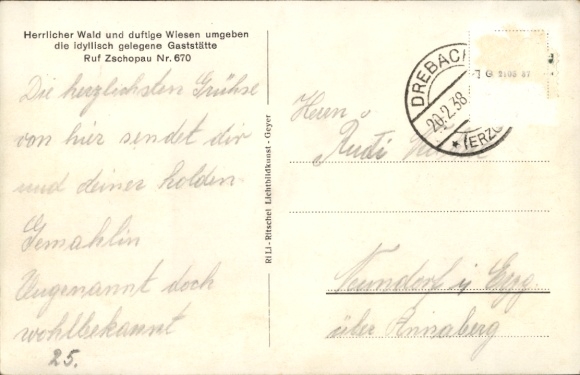 Herrlicher Wald und duftige Wiesen umgeben
die idyllisch gelegene Gaststätte
Ruf Zschopau Nr. 670
Die herzlichsten Grühse
von hier sendet dir
und deiner holden
Gemahlin
Ungenannt doch
wohlbekannt
25.
RiLi-Ritschel Lichtbildkunst-Geyer
DREBACH
20.2.38
* (ERZG
Herrn
Rudi
Neundorf i/ Erzg.
über Annaberg